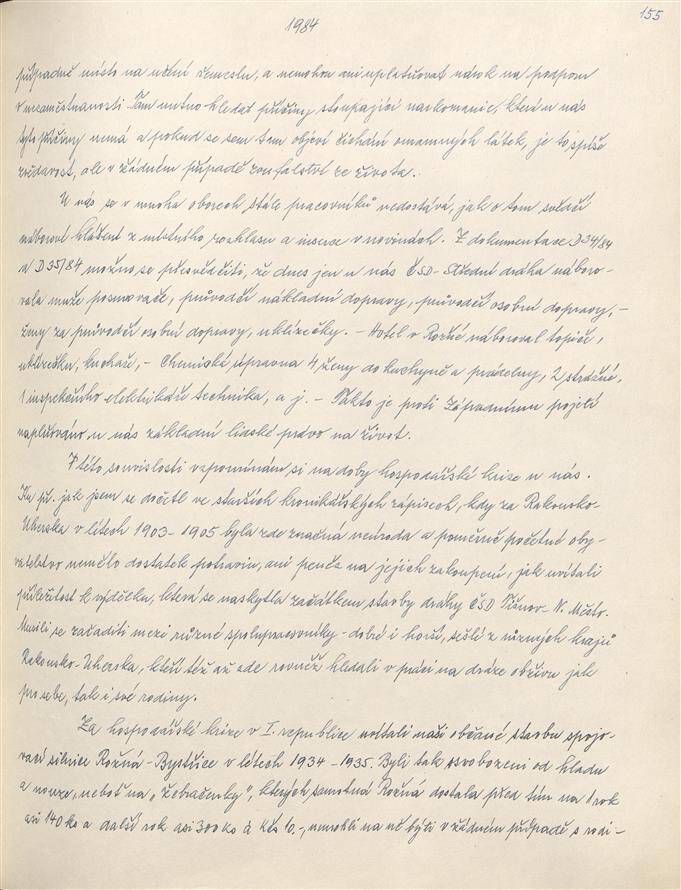 155
1984
případně místo na učení řemeslu, a nemohou ani uplatňovat nárok na podporu
v nezaměstnanosti. Tam nutno hledat příčiny stoupající narkomanie, která u nás
tyto příčiny nemá a pokud se sem tam objeví čichání omamných látek, je to spíše
zvědavost, ale v žádném případě zoufalství ze života.
U nás se v mnoha oborech stále pracovníků nedostává, jak o tom svědčí
náborové hlášení z místního rozhlasu a inzerce v novinách. Z dokumentace D 34/84
a D 35/84 možno se přesvědčiti, že dnes jen u nás ČSD - Střední dráha náboro-
vala muže posunovače, průvodčí nákladní dopravy, průvodčí osobní dopravy, -
ženy za průvodčí osobní dopravy, uklízečky. - Hotel v Rožné náboroval topiče,
uklízečku, kuchaře, - Chemická úpravna 4 ženy do kuchyně a prádelny, 2 strážné,
1 inspekčního elektrikáře technika, a j. - Takto je proti Západnímu pojetí
naplňováno u nás základní lidské právo na život.
V této souvislosti vzpomínám si na doby hospodářské krize u nás.
Ku př. jak jsem se dočetl ve starších kronikářských zápisech, kdy za Rakousko-
Uherska v létech 1903 - 1905 byla zde značná neúroda a poměrně početné oby-
vatelstvo nemělo dostatek potravin, ani peněz na jejich zakoupení, jak uvítali
příležitost k výdělku, která se naskytla začátkem stavby dráhy ČSD Tišnov - N. Město.
Musili se zařaditi mezi různé spolupracovníky - dobré i horší, sešlé z různých krajů
Rakousko-Uherska, kteří též až sde rovněž hledali v práci na dráze obživu jak
pro sebe, tak i své rodiny.
Za hospodářské krize v I. republice uvítali naši občané stavbu spojo-
vací silnice Rožná - Bystřice v létech 1934 - 1935. Byli tak osvobozeni od hladu
a nouze, neboť na „žebračenky", kterých samotná Rožná dostala před tím na 1 rok
asi 140 ks a další rok asi 300 ks á Kčs 10.-, nemohli na ně býti v žádném případě s rodi-